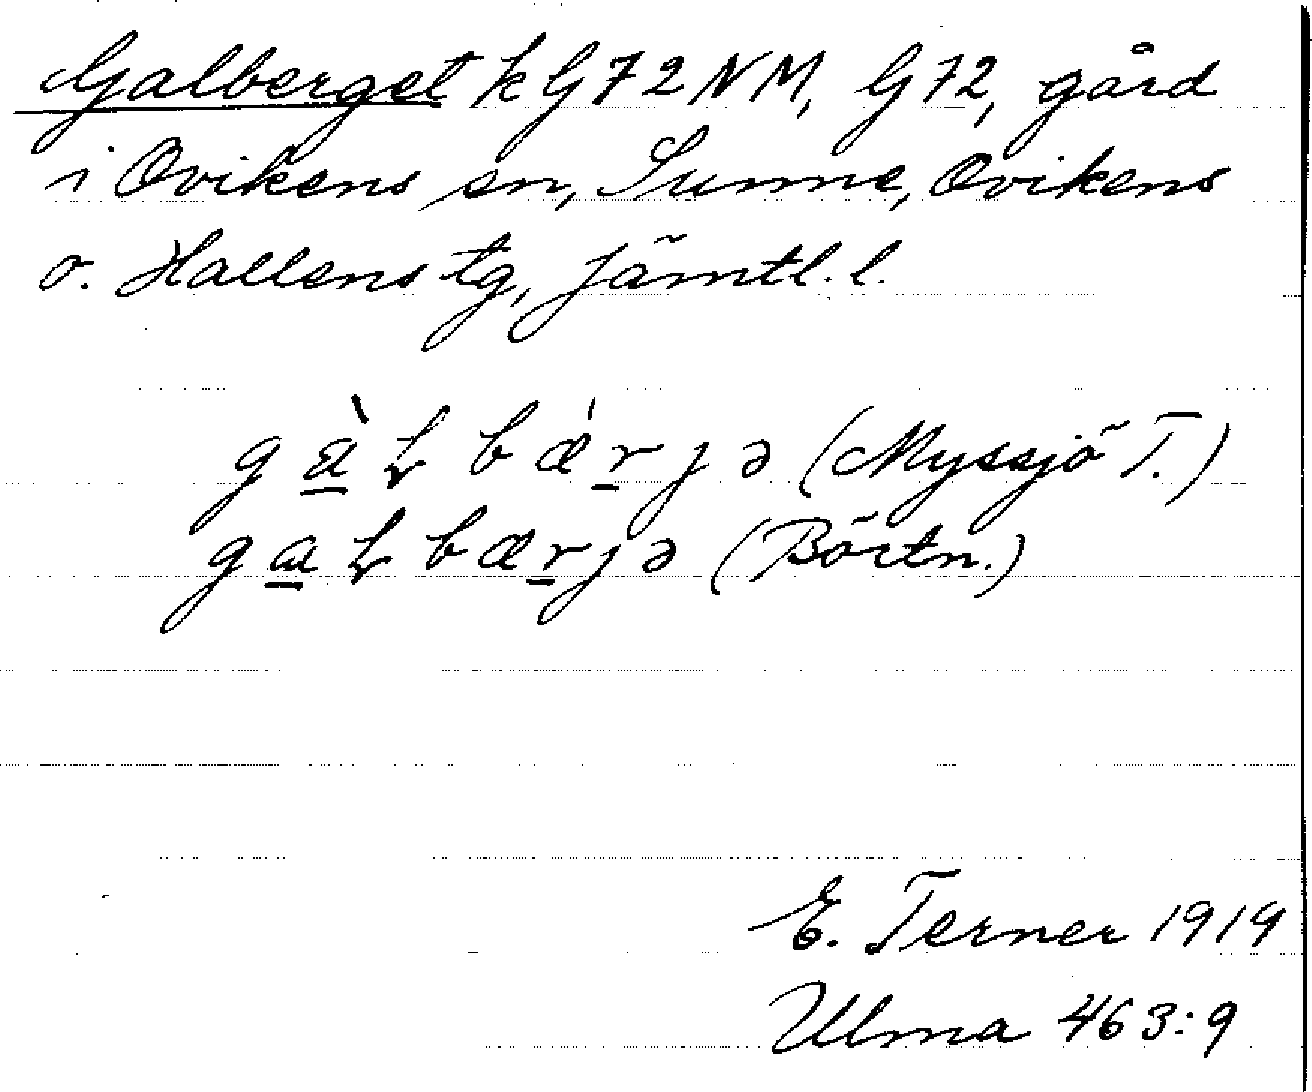 Galberget k G72NM, G72, gård
i Ovikens sn, Sunne, Ovikens
o. Hallens tg, Jämtl. l.
gàɽbǽrjə (Myssjö T.)
gaɽbærjə (Börtn.)
E. Terner 1919
Ulma 463:9